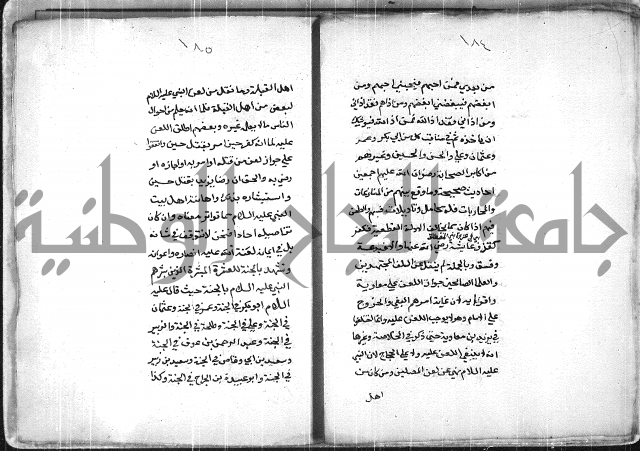 ١٨٤
من بعدي فمن احبهم فبحبي احبهم ومن
ابغضهم فببغضي ابغضهم ومن اذاهم فقد اذاني
ومن اذاني فقد اذا الله فمن اذا الله فيوشك
ان ياخذه ثم في مناقب كل من ابي بكر وعمر
وعثمان وعلي والحسن والحسين وغيرهم
من اكابر الصحابة رضوان الله عليهم اجمعين
احاديث صحيحة وما وقع بينهم من المنازعات
والمحاربات فله محامل وتاويلات فسبهم والطعن
فيهم اذا كان مما يخالف الادلة القطعية فكفر
كقذف عايشة رضي الله عنها والا فبدعة
وفسق وبالجملة لم ينقل عن السلف المجتهدين
والعلما الصالحين جواز اللعن على معاوية
واعوانه لان غاية امرهم البغي والخروج
على الامام وهو لا يوجب اللعن عليه وانما اختلفوا
في يزيد بن معاوية حتى ذكر في الخلاصة وغيرها
انه لا ينبغي اللعن عليه ولا على الحجاج لان النبي
عليه السلام نهى عن لعن المصلين ومن كان من
اهل
١٨٥
اهل القبلة وما نقل من لعن النبي عليه السلام
لبعض من اهل القبلة فلما انه يعلم من احوال
الناس مالا يعلمه غيره وبعضهم اطلق اللعن
عليه لما انه كفر حين امر بقتل حسين واتفقوا
على جواز لعن من قتله او امر به او اجازه او
رضي به والحق ان رضا يزيد بقتل حسين
واستبشاره بذلك واهانته اهل بيت
النبي عليه السلام مما تواتر معناه وان كان
تفاصيله احادا فنحن لا نتوقف في شانه
بل في ايمانه لعنة الله عليه وعلى انصاره واعوانه
ونشهد بالجنة للعشرة المبشرة الذين بشرهم
النبي عليه السلام بالجنة حيث قال عليه
السلام ابو بكر في الجنة وعمر في الجنة وعثمان
في الجنة وعلي في الجنة وطلحة في الجنة والزبير
في الجنة وعبد الرحمن بن عوف في الجنة
وسعد بن ابي وقاص في الجنة وسعيد بن زيد
في الجنة وابو عبيدة بن الجراح في الجنة وكذا
جامعة النجاح الوطنية